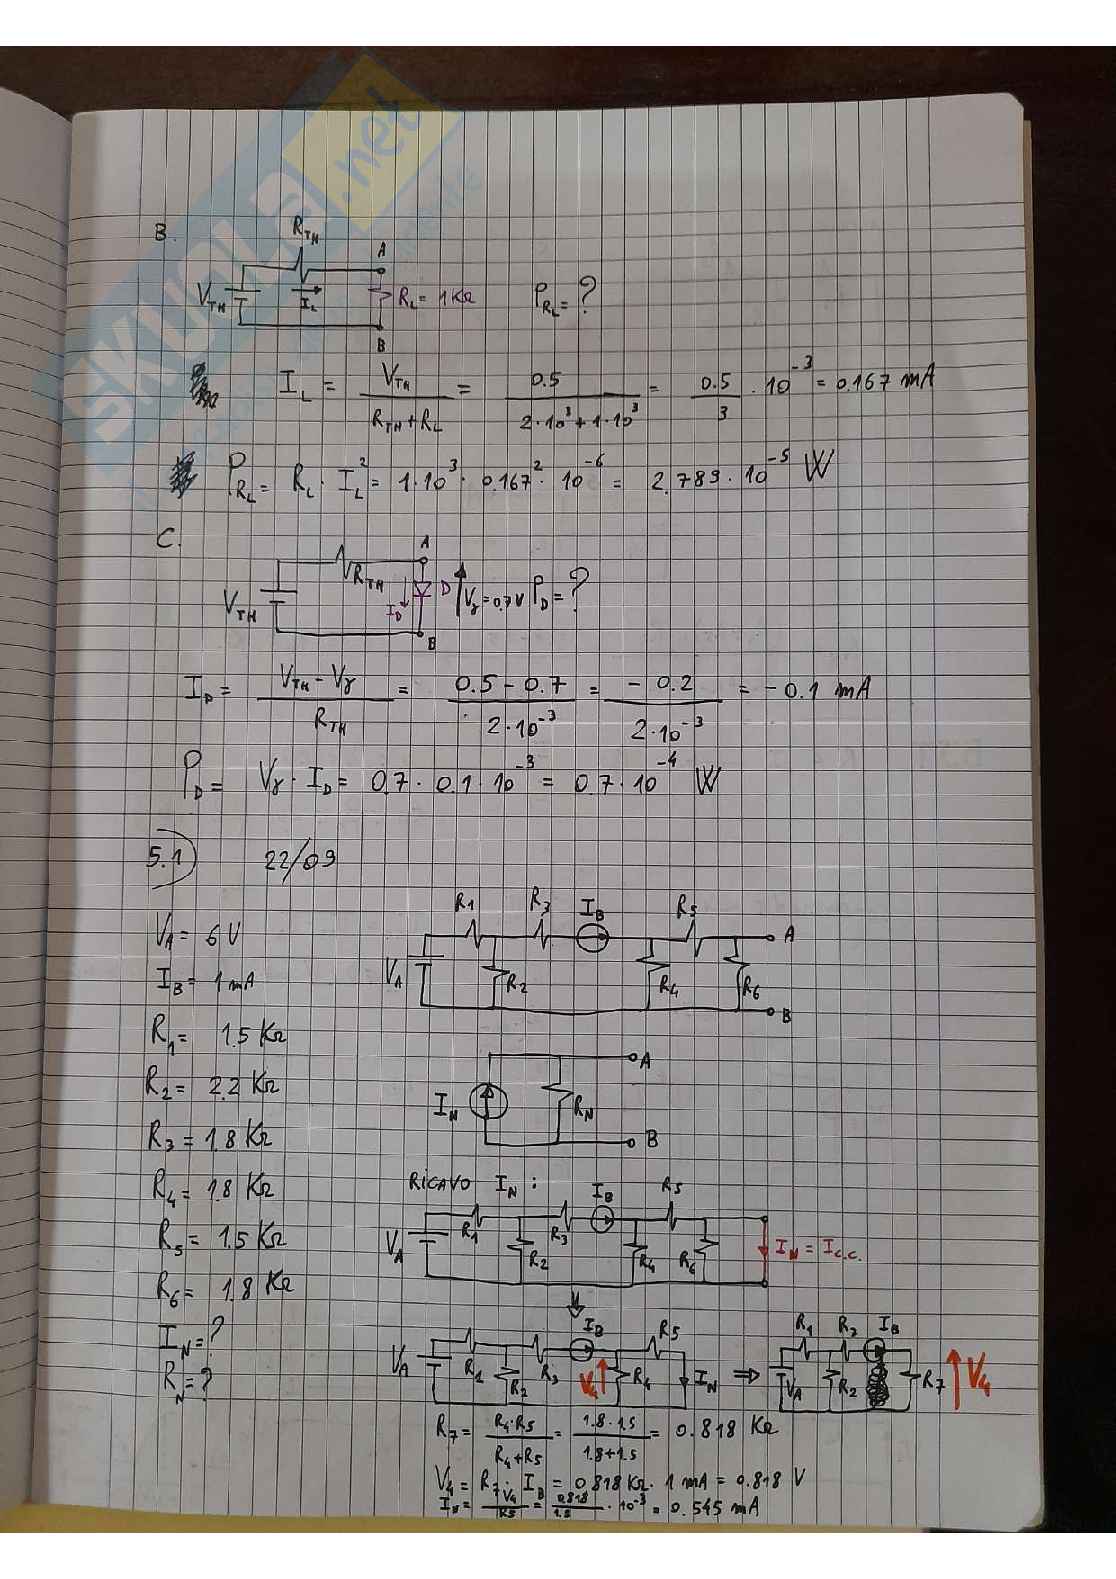 SKUOLA.net
B.
R_TH
A
V_TH I_L R_L = 1 KΩ P_RL = ?
B
I_L = V_TH / (R_TH + R_L) = 0.5 / (2·10³ + 1·10³) = 0.5/3 · 10⁻³ = 0.167 mA
P_RL = R_L · I_L² = 1·10³ · 0.167² · 10⁻⁶ = 2.789 · 10⁻⁵ W
C.
A
R_TH
V_TH I_D D Vγ = 0.7 V P_D = ?
B
I_D = (V_TH - Vγ) / R_TH = (0.5 - 0.7) / (2·10⁻³) = - 0.2 / (2·10⁻³) = - 0.1 mA
P_D = Vγ · I_D = 0.7 · 0.1 · 10⁻³ = 0.7 · 10⁻⁴ W
5.1) 22/09
R1 R3 I_B R5
A
V_A R2 R4 R6
B
V_A = 6 V
I_B = 1 mA
R_1 = 1.5 KΩ
R_2 = 2.2 KΩ
R_3 = 1.8 KΩ
R_4 = 1.8 KΩ
R_5 = 1.5 KΩ
R_6 = 1.8 KΩ
I_N = ?
R_N = ?
A
I_N R_N
B
RICAVO I_N :
I_B R5
V_A R1 R2 R3 R4 R6 I_N = I_c.c.
I_B R5
V_A R1 R2 R3 V4 R4 I_N ⇒
R1 R2 I_B
V_A R2 R7 V4
R_7 = (R4·R5) / (R4+R5) = (1.8·1.5) / (1.8+1.5) = 0.818 KΩ
V_4 = R_7 · I_B = 0.818 KΩ · 1 mA = 0.818 V
I_N = V4 / R5 = 0.818 / 1.5 · 10⁻³ = 0.545 mA